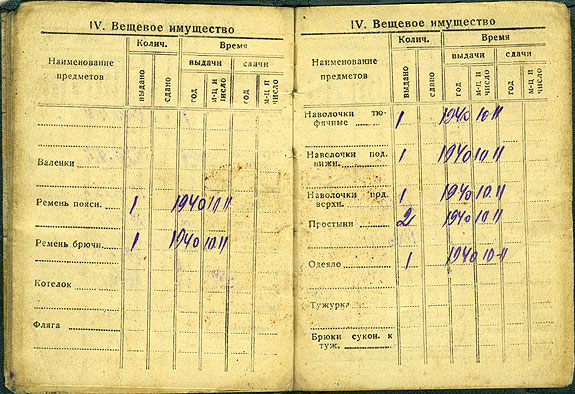 IV. Вещевое имущество
Наименование предметов
Колич.
Время
выдано
сдано
выдачи
сдачи
год
м-ц и число
год
м-ц и число
Валенки
Ремень поясн. 1 1940 10.11
Ремень брючн. 1 1940 10.11
Котелок
Фляга
IV. Вещевое имущество
Наименование предметов
Колич.
Время
выдано
сдано
выдачи
сдачи
год
м-ц и число
год
м-ц и число
Наволочки тю-
фячные 1 1940 10.11
Наволочки под.
нижн. 1 1940 10.11
Наволочки под.
верхн. 1 1940 10.11
Простыни 2 1940 10.11
Одеяло 1 1940 10-11
Тужурка
Брюки сукон. к
туж.